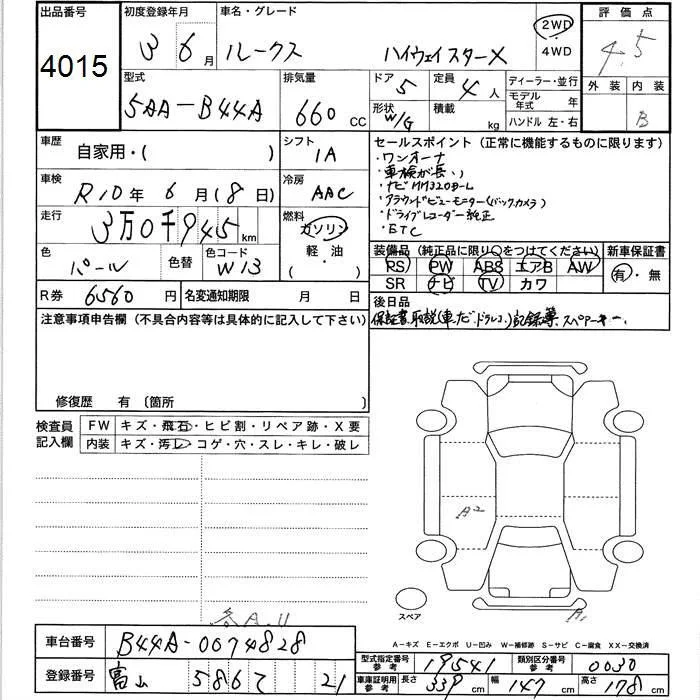 出品番号 4015
初度登録年月 3 6月
車名・グレード ルークス ハイウェイスターX
2WD
4WD
評価点 4.5
外装 内装 B
型式 5AA-B44A
排気量 660cc
ドア 5
定員 4人
形状 W/G
積載 kg
ディーラー・並行
モデル年式 年
ハンドル 左・右
車歴 自家用・( )
シフト 1A
車検 R10年6月(8日)
冷房 AAC
走行 3万0千945km
燃料 ガソリン・軽油・( )
色 パール 色替
色コード W13
R券 6560円
名変通知期限 月 日
セールスポイント(正常に機能するものに限ります)
・ワンオーナ
・車検が長い
・ナビMM320D-L
・アラウンドビューモニター(バックカメラ)
・ドライブレコーダー純正
・ETC
装備品(純正品に限り○をつけてください)
PS PW ABS エアB AW
SR ナビ TV カワ
新車保証書 有・無
後日品
保証書、取説(車、ナビ、ドラレコ)記録簿、スペアキー、
注意事項申告欄(不具合内容等は具体的に記入して下さい)
修復歴 有〔箇所
検査員記入欄
FW キズ・飛石・ヒビ割・リペア跡・X要
内装 キズ・汚レ・コゲ・穴・スレ・キレ・破レ
A2
A1
スペア
A-キズ E-エクボ U-凹み W-補修跡 S-サビ C-腐食 XX-交換済
車台番号 B44A-0074828
登録番号 富山 586 21
型式指定番号参考 19541
類別区分番号参考 0030
車庫証明用参考 長さ339cm 幅147cm 高さ178cm